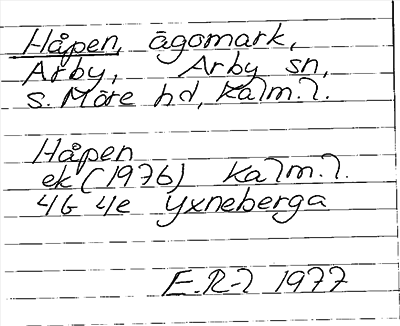 Håpen, ägomark,
Arby, Arby sn,
S. Möre hd, Kalm. l.
Håpen
ek (1976) Kalm. l.
4G 4e Yxneberga
E.R-l 1977